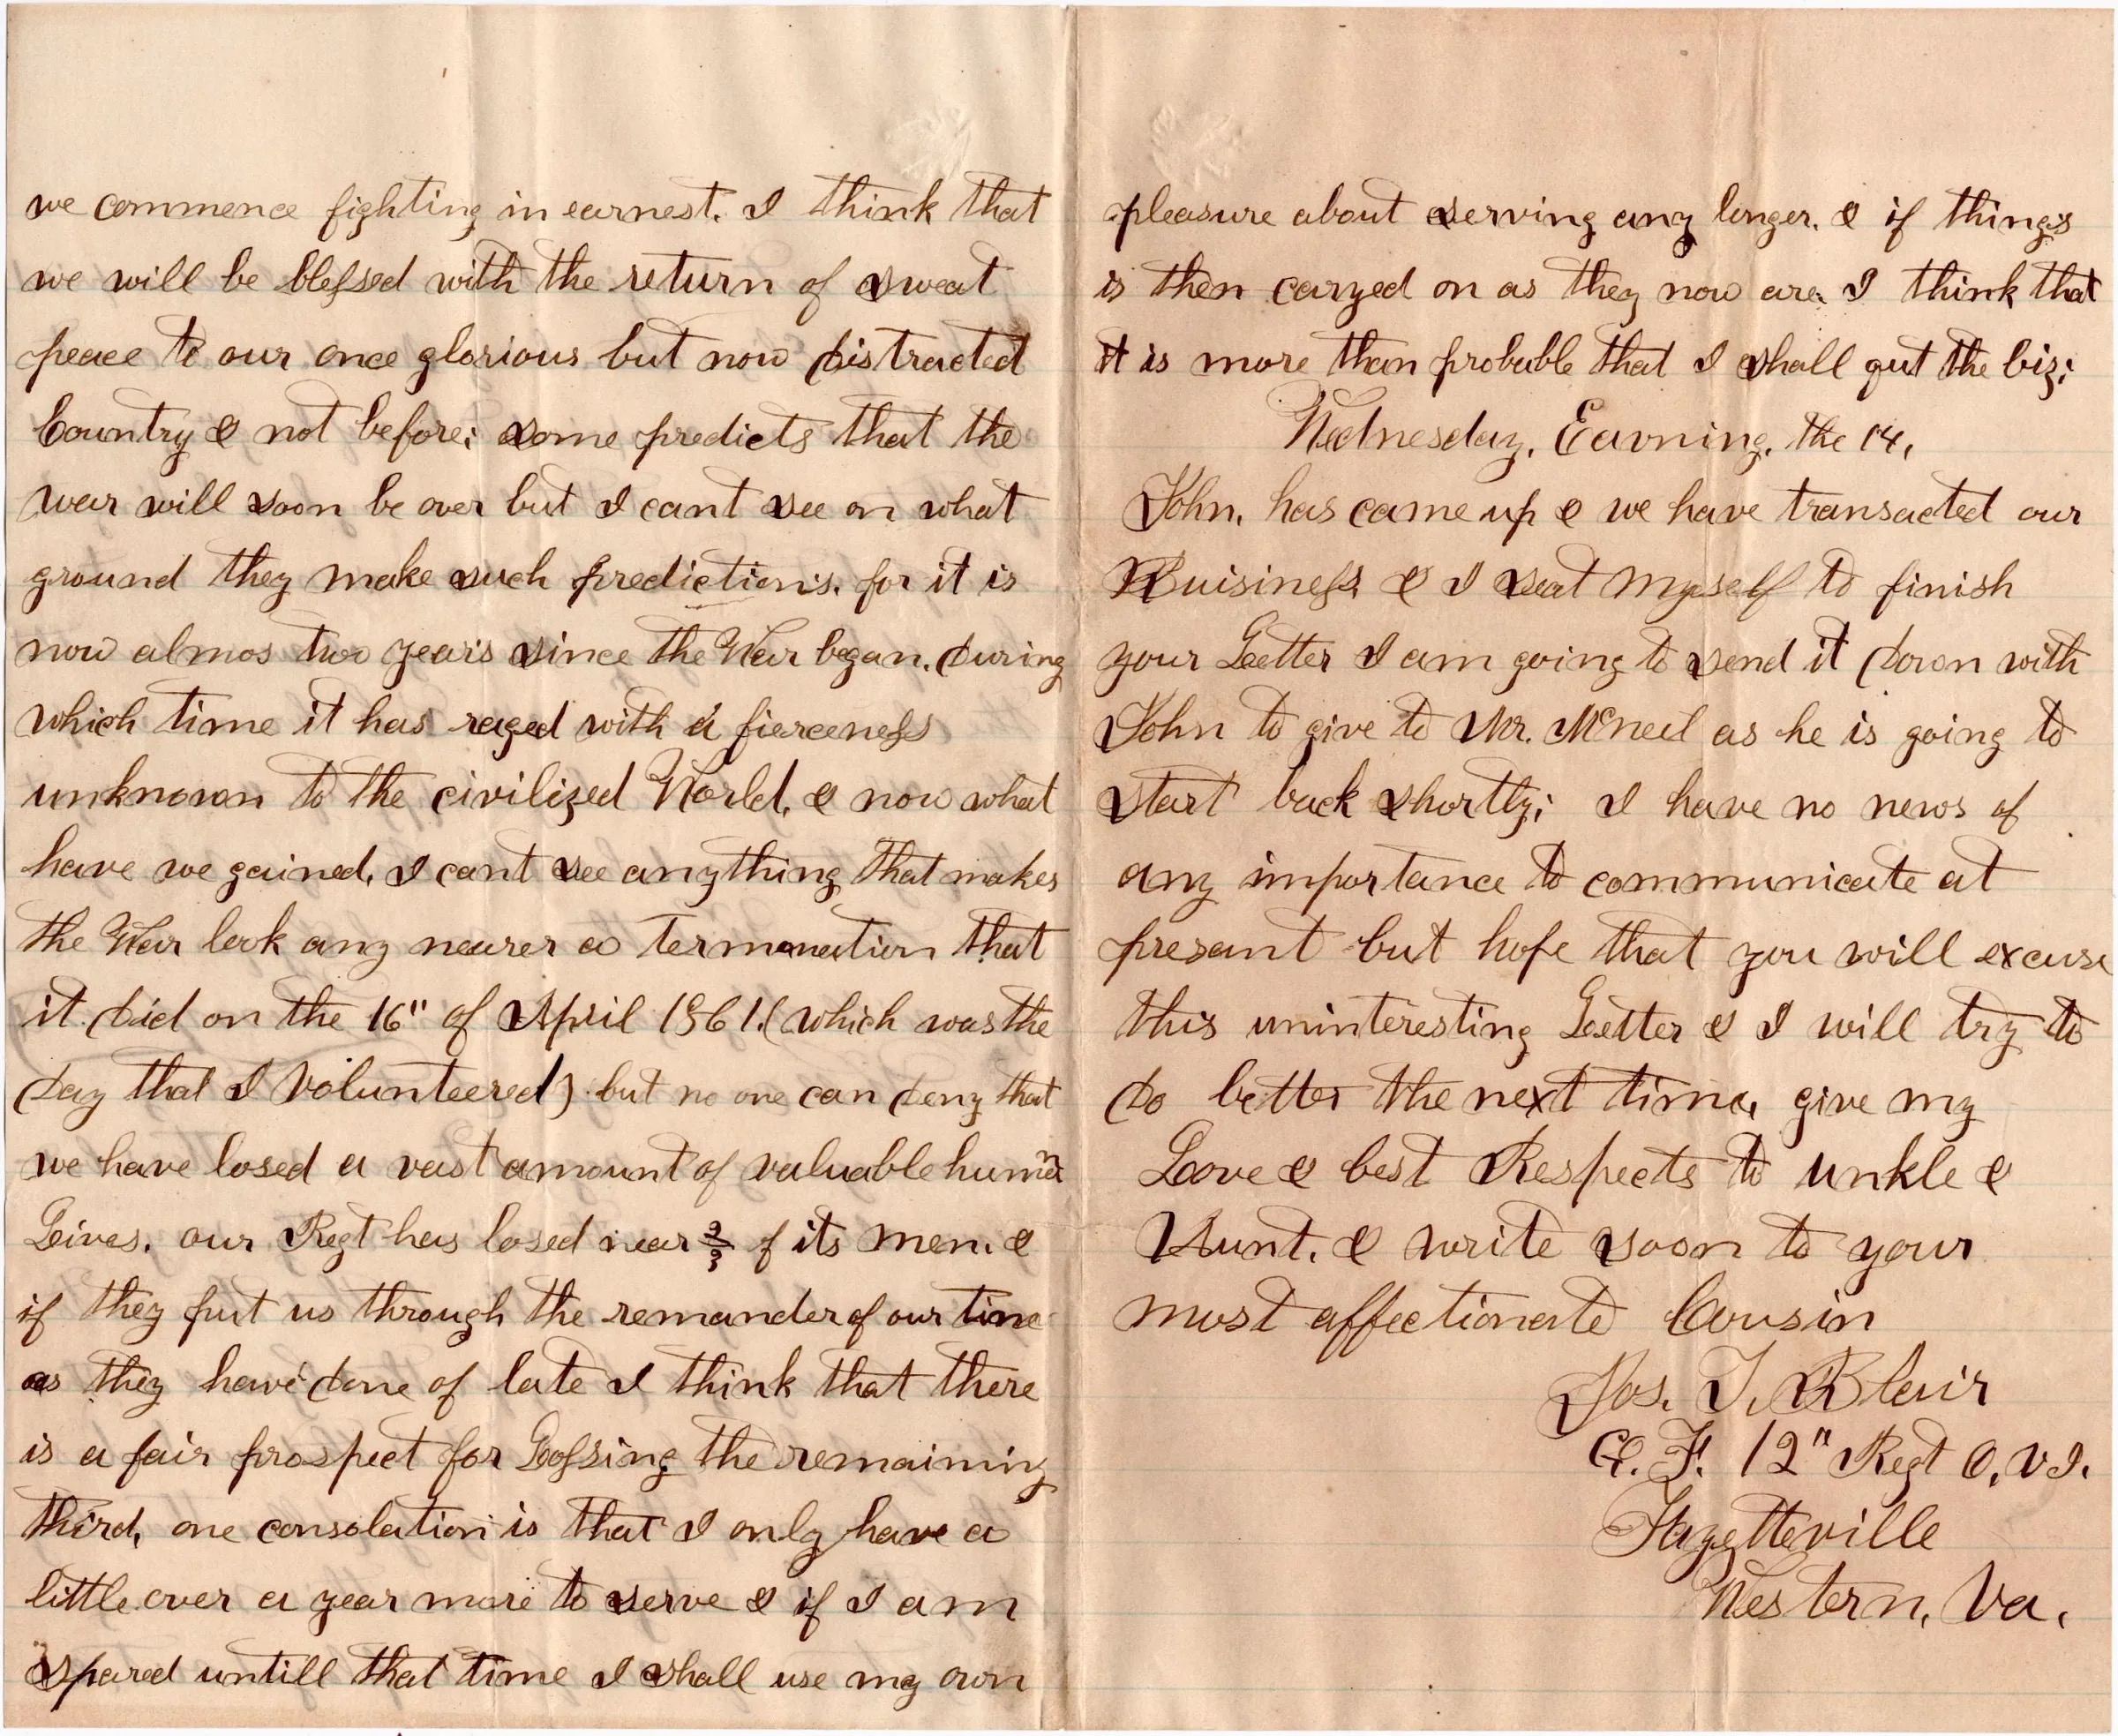 we commence fighting in earnest. I think that
we will be blessed with the return of sweat
peace to our once glorious but now distracted
Country & not before; some predicts that the
war will soon be over but I cant see on what
ground they make such predictions. for it is
now almos two years since the War began. during
which time it has raged with a fierceness
unknown to the civilized World. & now what
have we gained. I cant see anything that makes
the War look any nearer a termanation that
it did on the 16" of April 1861. (which was the
day that I volunteered) but no one can deny that
we have losed a vast amount of valuable human
Lives. our Regt has losed near 2/3 of its men. &
if they put us through the remander of our time
as they have done of late I think that there
is a fair prospect for Lossing the remaining
third. one consolation is that I only have a
little over a year more to serve & if I am
spared untill that time I shall use my own
pleasure about serving any longer. & if things
is then caryed on as they now are. I think that
it is more than probable that I shall qut the biz;
Wednesday. Eavning. the 14.
John. has came up & we have transacted our
Buisiness & I seat myself to finish
your Letter I am going to send it down with
John to give to Mr. McNeil as he is going to
start back shortly; I have no news of
any importance to communicate at
presant but hope that you will excuse
this uninteresting Letter & I will try to
do better the next time. give my
Love & best Respects to unkle &
Aunt. & write soon to your
most affectionate Cousin
Jos. T. Blair
Co. F. 12" Regt O. V I.
Fayetteville
Western. Va.